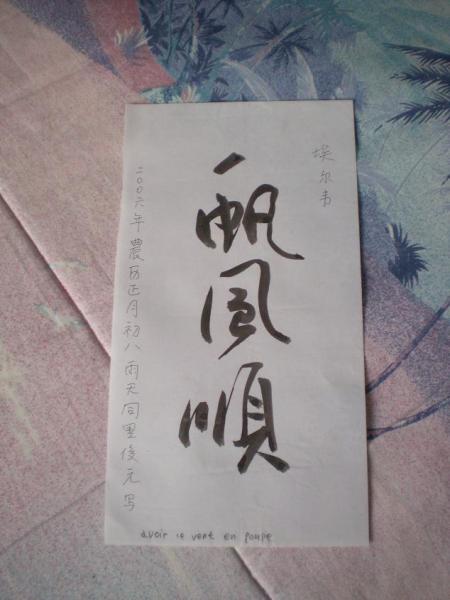 埃尔韦
一帆风順
二〇〇六年農历正月初八雨天同里俊元写
avoir le vent en poupe